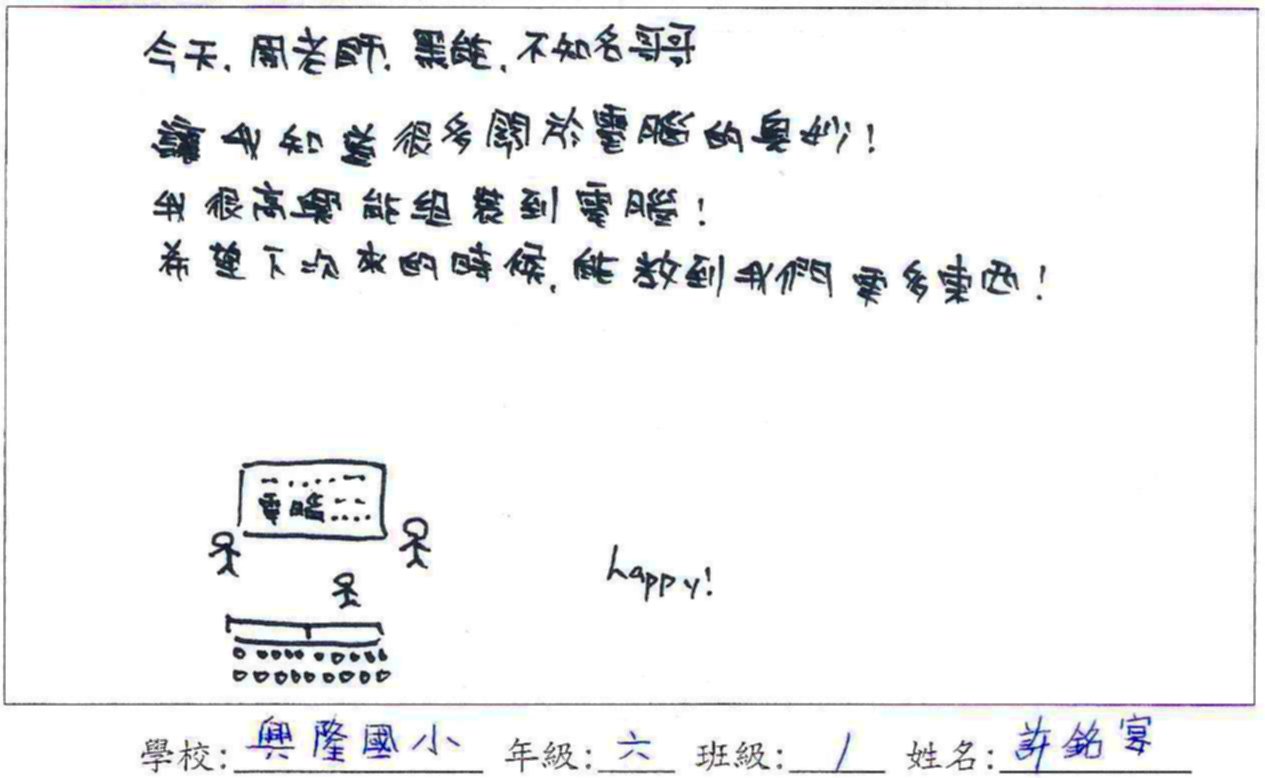 今天，周老師，黑熊，不知名哥哥
讓我知道很多關於電腦的奧妙！
我很高興能組裝到電腦！
希望下次來的時候，能教到我們更多東西！
電腦
happy!
學校：興隆國小 年級：六 班級：1 姓名：許銘宴